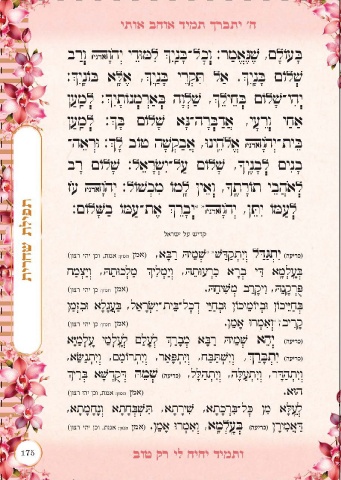 ה' יתברך תמיד אוהב אותי
בָּעוֹלָם, שֶׁנֶּאֱמַר: וְכָל־בָּנַֽיִךְ לִמּוּדֵי יְהֹוָה, וְרַב
שְׁלוֹם בָּנָֽיִךְ, אַל תִּקְרֵי בָּנָֽיִךְ, אֶלָּא בּוֹנָֽיִךְ:
יְהִי־שָׁלוֹם בְּחֵילֵךְ, שַׁלְוָה בְּאַרְמְנוֹתָֽיִךְ: לְמַעַן
אַחַי וְרֵעָי, אֲדַבְּרָה־נָּא שָׁלוֹם בָּךְ: לְמַעַן
בֵּית־יְהֹוָה אֱלֹהֵינוּ, אֲבַקְשָׁה טוֹב לָךְ: וּרְאֵה־
בָנִים לְבָנֶֽיךָ, שָׁלוֹם עַל־יִשְׂרָאֵל: שָׁלוֹם רָב
לְאֹהֲבֵי תוֹרָתֶֽךָ, וְאֵין לָֽמוֹ מִכְשׁוֹל: יְהֹוָה עֹז
לְעַמּוֹ יִתֵּן, יְהֹוָה יְבָרֵךְ אֶת־עַמּוֹ בַשָּׁלוֹם:
קדיש על ישראל
(כריעה) יִתְגַּדַּל וְיִתְקַדַּשׁ שְׁמֵהּ רַבָּא,
בְּעָלְמָא דִּי בְרָא כִרְעוּתֵהּ, וְיַמְלִיךְ מַלְכוּתֵהּ, וְיַצְמַח
פֻּרְקָנֵהּ, וִיקָרֵב מְשִׁיחֵהּ.
בְּחַיֵּיכוֹן וּבְיוֹמֵיכוֹן וּבְחַיֵּי דְכָל־בֵּית־יִשְׂרָאֵל, בַּעֲגָלָא וּבִזְמַן
קָרִיב, וְאִמְרוּ אָמֵן.
(כריעה) יְהֵא שְׁמֵהּ רַבָּא מְבָרַךְ לְעָלַם לְעָלְמֵי עָלְמַיָּא
(כריעה) יִתְבָּרַךְ, וְיִשְׁתַּבַּח, וְיִתְפָּאַר, וְיִתְרוֹמַם, וְיִתְנַשֵּׂא,
וְיִתְהַדָּר, וְיִתְעַלֶּה, וְיִתְהַלָּל, (כריעה) שְׁמֵהּ דְּקֻדְשָׁא בְּרִיךְ
הוּא.
לְעֵלָּא מִן כָּל־בִּרְכָתָא, שִׁירָתָא, תֻּשְׁבְּחָתָא וְנֶחֱמָתָא,
דַּאֲמִירָן (כריעה) בְּעָלְמָא, וְאִמְרוּ אָמֵן.
תפילת שחרית
175
ותמיד יהיה לי רק טוב